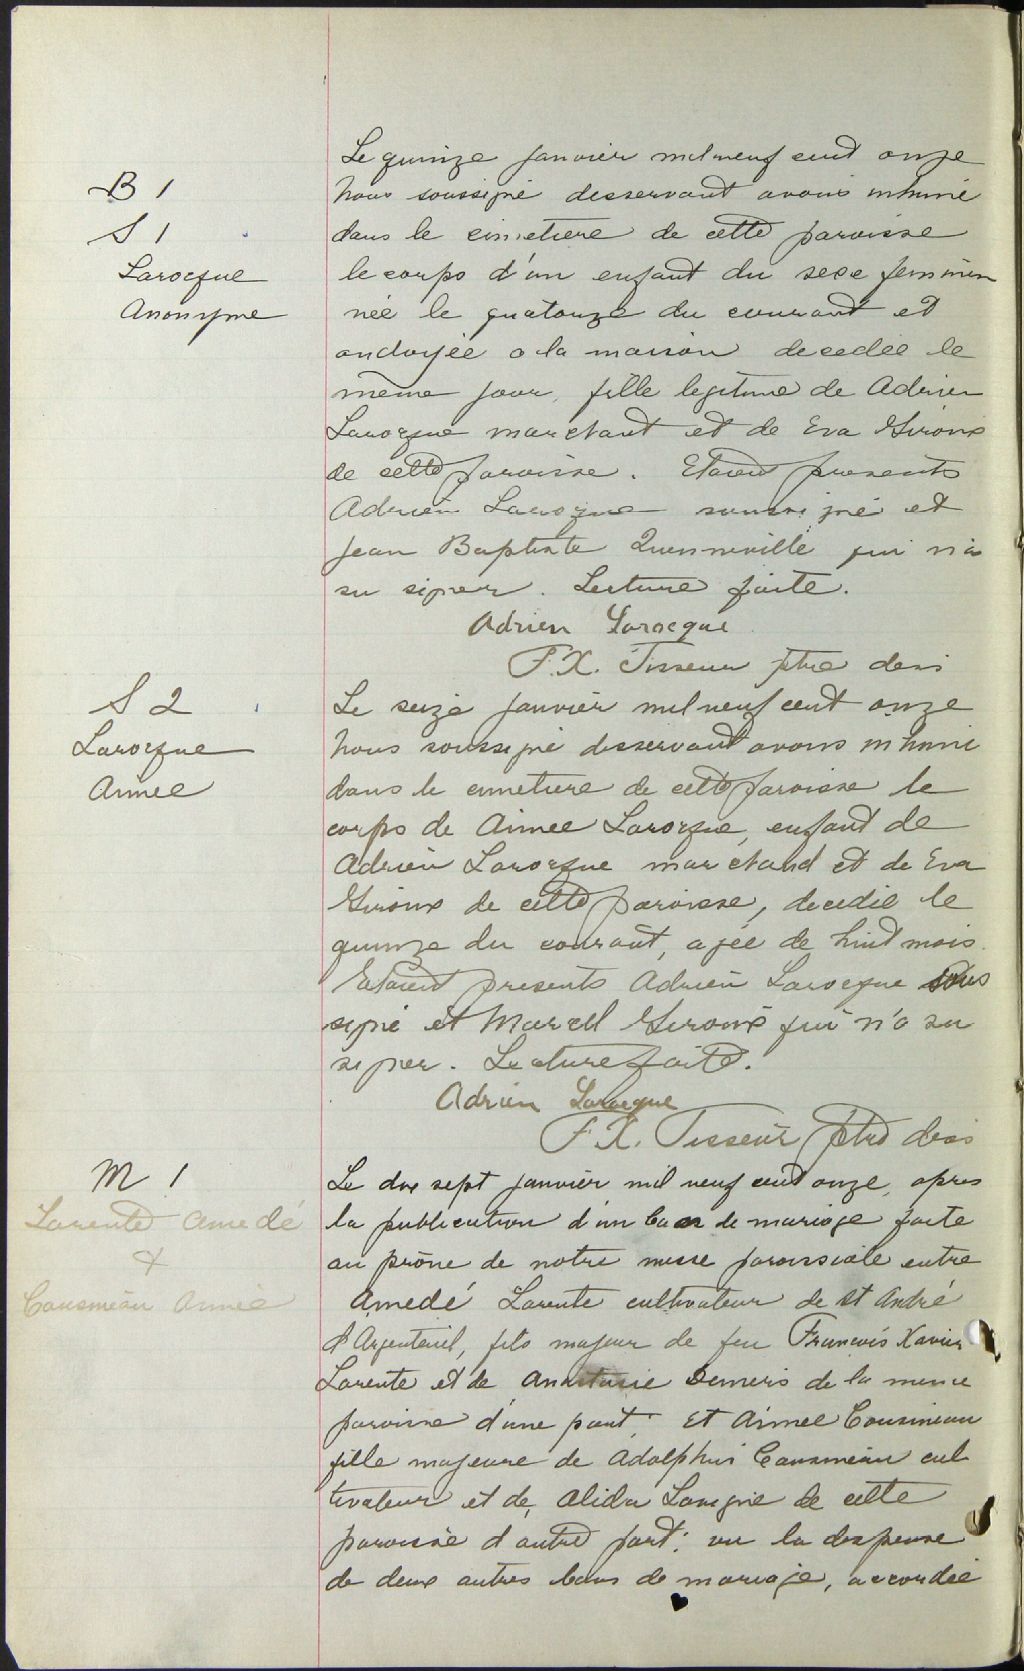 B 1
S 1
Larocque
Anonyme
Le quinze janvier mil neuf cent onze
nous soussigné desservant avons inhumé
dans le cimetiere de cette paroisse
le corps d'un enfant du sexe feminin
née le quatorze du courant et
ondoyée a la maison decedée le
même jour, fille legitime de Adrien
Larocque marchant et de Eva Giroux
de cette paroisse. Etaient presents
Adrien Larocque soussigné et
Jean Baptiste Quenneville qui n'a
su signer. Lecture faite.
Adrien Larocque
F.X. Tisseur ptre des
S 2
Larocque
Aimee
Le seize janvier mil neuf cent onze
nous soussigné desservant avons inhumé
dans le cimetiere de cette paroisse le
corps de Aimee Larocque, enfant de
Adrien Larocque marchand et de Eva
Giroux de cette paroisse, decedée le
quinze du courant, agée de huit mois.
Etaient presents Adrien Larocque sous
signé et Marcell Giroux qui n'a su
signer. Lecture faite.
Adrien Larocque
F.X. Tisseur ptre des
M 1
Larente Amedé
&
Cousineau Aimée
Le dix sept janvier mil neuf cent onze, apres
la publication d'un ban de mariage faite
au prône de notre messe paroissiale entre
Amedé Larente cultivateur de St André
d'Argenteuil, fils majeur de feu Francois Xavier
Larente et de Anastasie Demers de la meme
paroisse d'une part; et Aimee Cousineau
fille majeure de Adolphus Cousineau cul
tivateur et de Alida de cette
paroisse d'autre part: vu la dispense
de deux autres bans de mariage, accordée